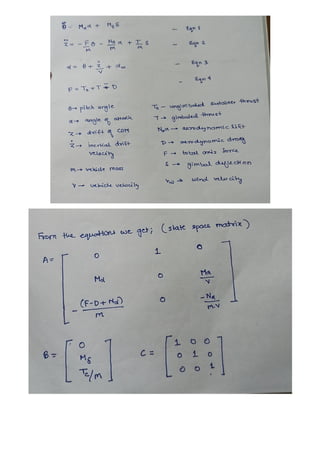 θ̈ = Mα α + Mδ δ — Eqn 1
z̈ = -F/m θ - Nα/m α + T/m δ — Eqn 2
α = θ + ż/V + αw — Eqn 3
F = Ts + T - D — Eqn 4
θ → pitch angle
α → angle of attack
z → drift of COM
ż → inertial drift velocity
m → vehicle mass
V → vehicle velocity
Ts → ungimballed sustainer thrust
T → gimballed thrust
Nα α → aerodynamic lift
D → aerodynamic drag
F → total axis force
δ → gimbal deflection
→ wind velocity
From the equations we get; (state space matrix)
A = [ 0 1 0
Mα 0 Mα/V
-(F-D+Nα)/m 0 -Nα/mV ]
B = [ 0
Mδ
Tc/m ]
C = [ 1 0 0
0 1 0
0 0 1 ]